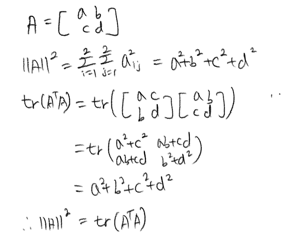 A = [a b
c d]
||A||² = Σ²ᵢ₌₁ Σ²ⱼ₌₁ a²ᵢⱼ = a²+b²+c²+d²
tr(AᵀA) = tr([a c
b d][a b
c d])
= tr(a²+c² ab+cd
ab+cd b²+d²)
= a²+b²+c²+d²
∴ ||A||² = tr(AᵀA)